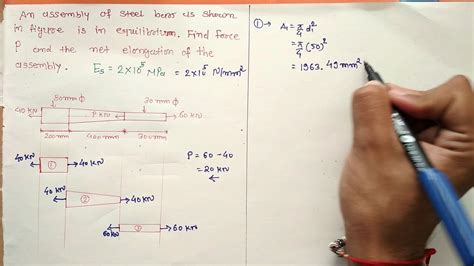 An assembly of steel bars as shown
in figure is in equilibrium. Find force
P and the net elongation of the
assembly. Es = 2×10⁵ MPa = 2×10⁵ N/mm²
80mmϕ 30mmϕ
40KN P KN 60KN
200mm 400mm 300mm
40KN ① 40KN
40KN ② 40KN
60KN ③ 60KN
P = 60 - 40
= 20KN
←
① → A₁ = π/4 d₁²
= π/4 (50)²
= 1963.49mm²